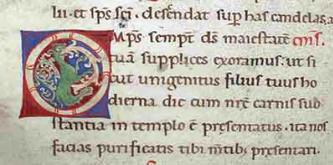 lii. et sp̄s sc̄i. descendat sup̄ has candelas.
Omp̄s sempit̄ dn̄s maiestatē
tuā supplices exoramus. ut si
cut unigenitus filius tuus ho
dierna die cum nr̄e carnis sub
stantia in templo ē presentatus. ita nos
facias purificatis tibi mtib; presentari.